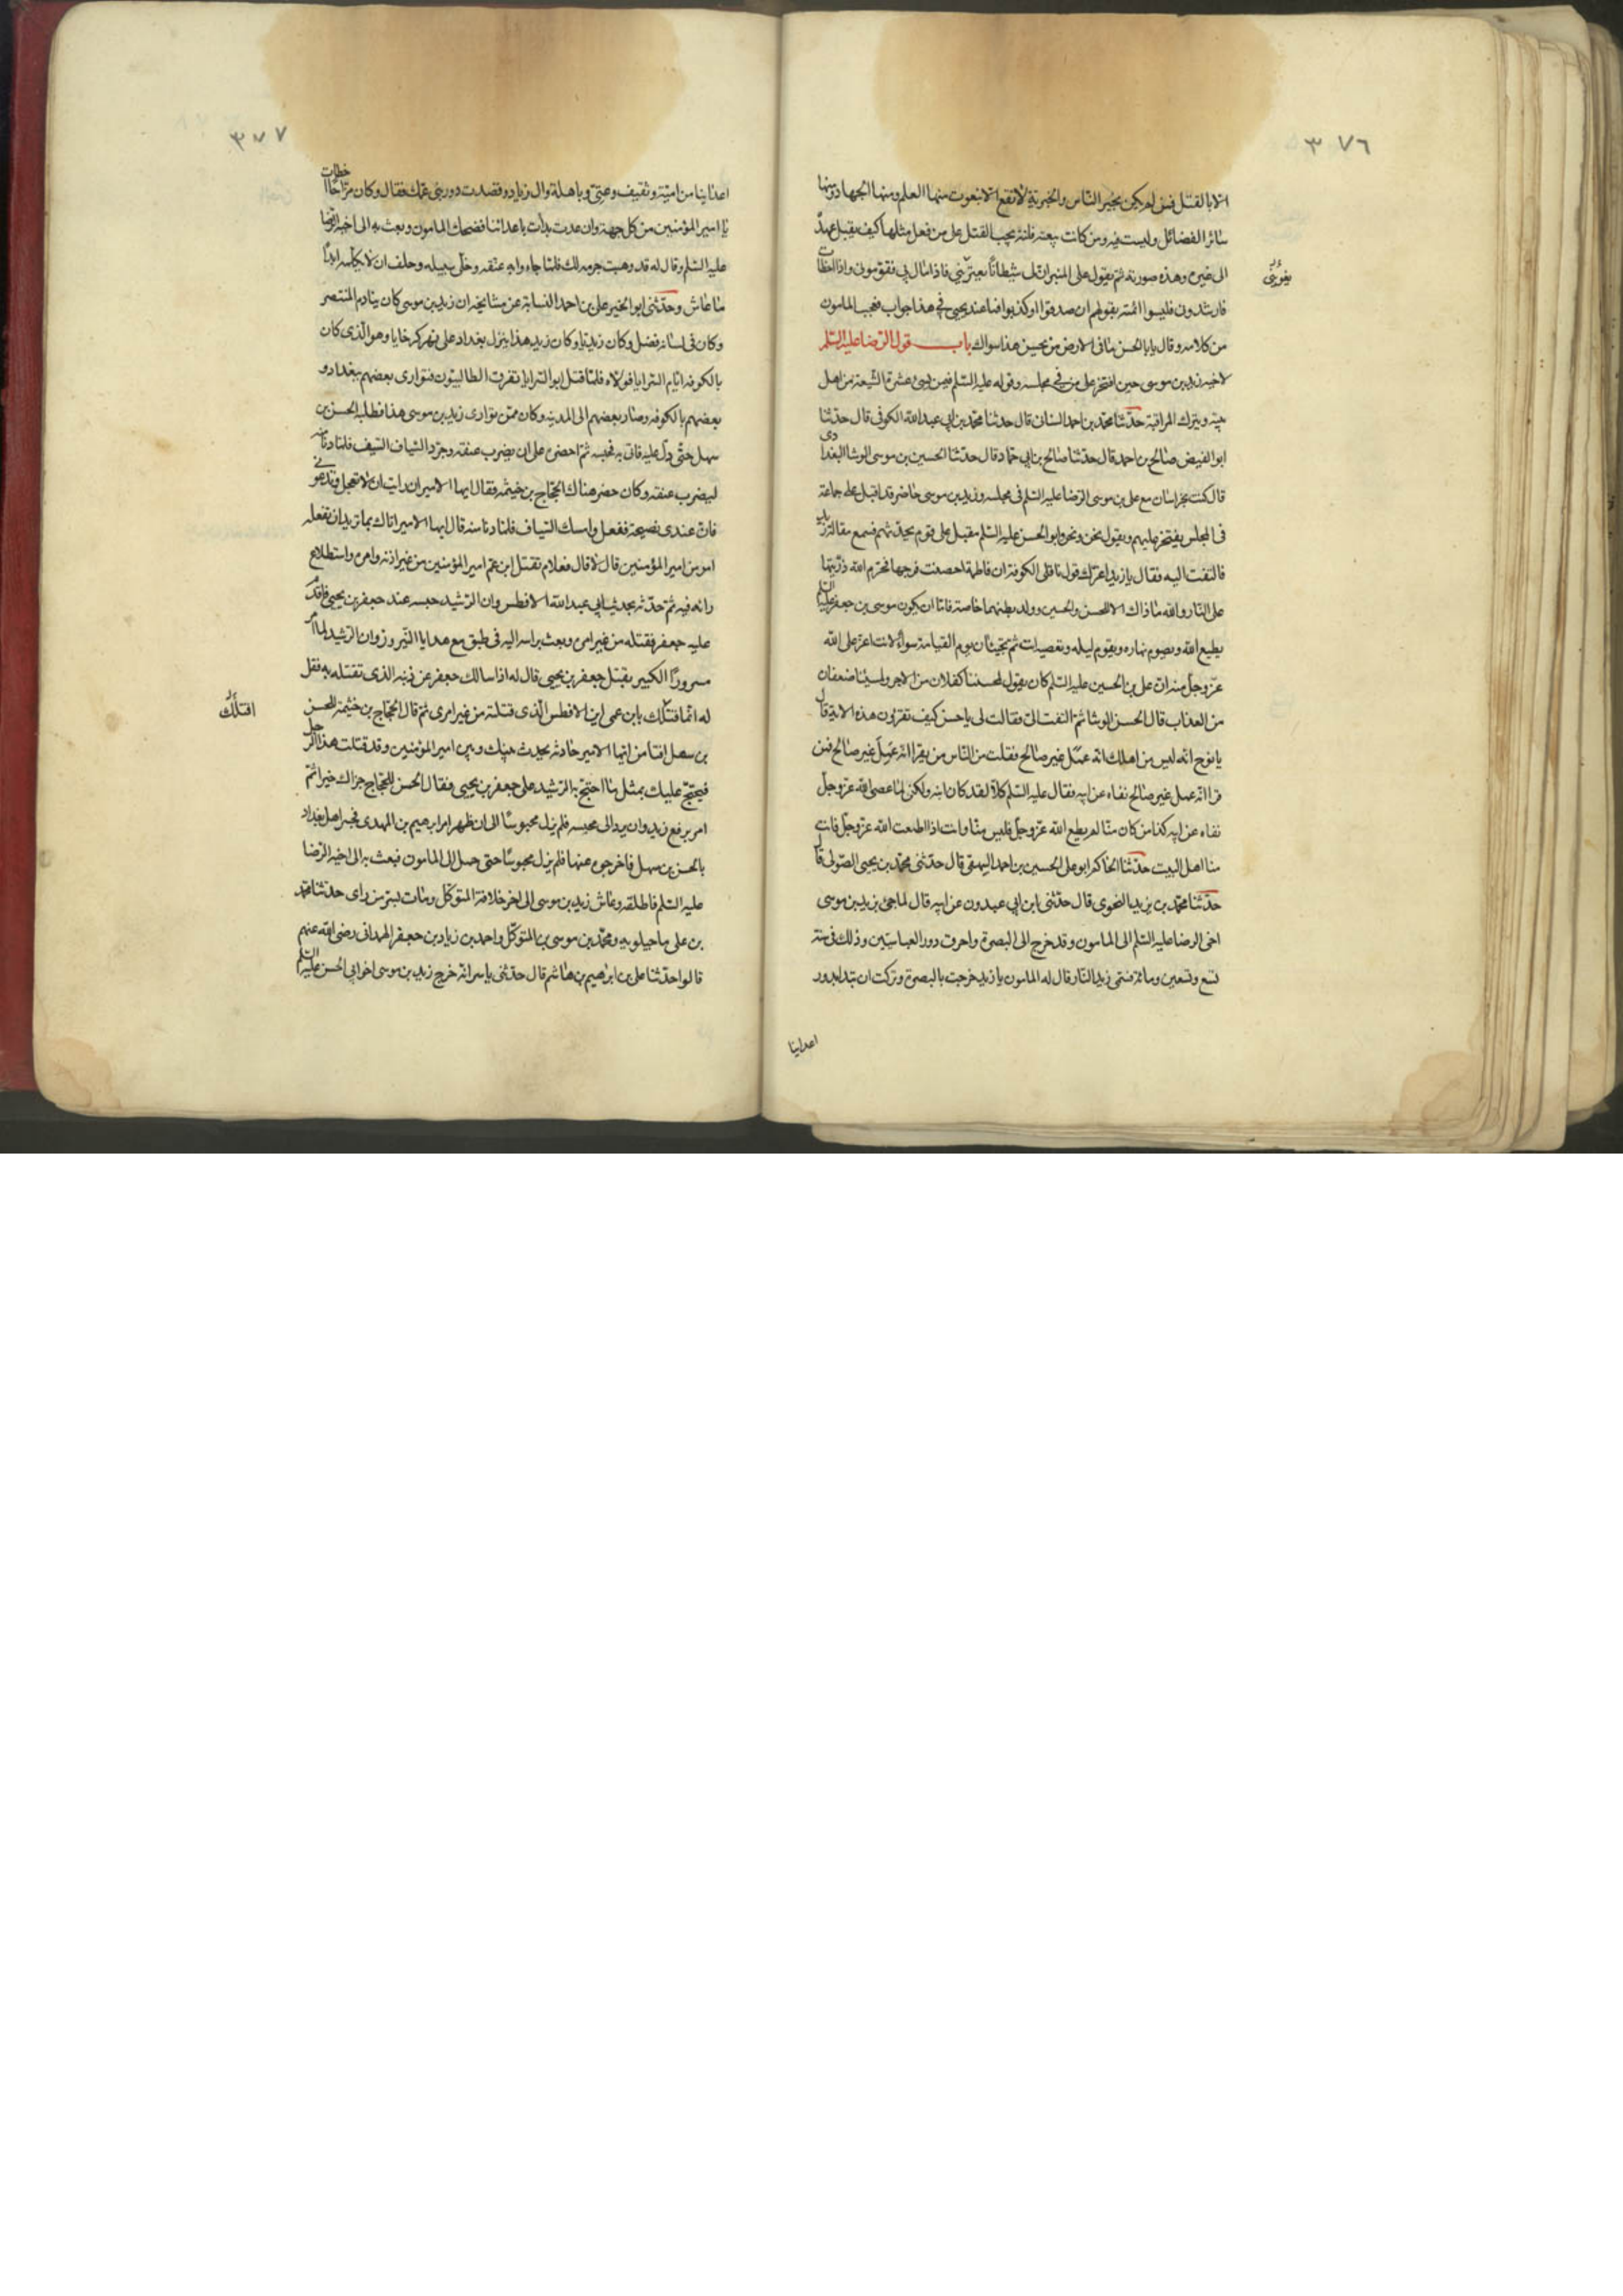 ٣٧٦
الا بالقتل فمن لم يكن بخير الناس والخيرية لا تقع الا بنعوت منها العلم ومنها الجهاد ومنها
سائر الفضائل وليست فيه ومن كانت بيعته فلتة يجب القتل على من فعل مثلها كيف يقبل عهده
الى غيره وهذه صورته ثم يقول على المنبر ان لي شيطانًا يعتريني فاذا مال بي فقوموني واذا اخطأت
يغويني
فارشدوني فليسوا ائمة بقولهم ان صدقوا او كذبوا فما عند يحيى في هذا جواب فعجب المامون
من كلامه وقال يا با الحسن ما في الارض من يحسن هذا سواك باب قول الرضا عليه السلم
لاخيه زيد بن موسى حين افتخر على من في مجلسه وقوله عليه السلم فيمن يسئ عشرة الشيعة من اهل
بيته ويترك المراقبة حدّثنا محمد بن احمد السنانى قال حدثنا محمد بن ابي عبد الله الكوفي قال حدّثنا
ابو الفيض صالح بن احمد قال حدّثنا صالح بن ابي حمّاد قال حدّثنا الحسن بن موسى الوشا البغدادى
قال كنت بخراسان مع علي بن موسى الرضا عليه السلم في مجلسه وزيد بن موسى حاضر قد اقبل على جماعة
في المجلس يفتخر عليهم ويقول نحن ونحن وابو الحسن عليه السلم مقبل على قوم يحدّثهم فسمع مقالة زيد
فالتفت اليه فقال يا زيد اغرّك قول ناقلي الكوفة ان فاطمة احصنت فرجها فحرّم الله ذرّيتها
على النار والله ما ذاك الا للحسن والحسين وولد بطنها خاصة فاما ان يكون موسى بن جعفر عليه السلم
يطيع الله ويصوم نهاره ويقوم ليله وتعصيه انت ثم تجيئان يوم القيامة سواءً لانت اعز على الله
عزّ وجلّ منه ان علي بن الحسين عليه السلم كان يقول لمحسننا كفلان من الاجر ولمسيئنا ضعفان
من العذاب قال الحسن الوشا ثم التفت الىّ فقال لي يا حسن كيف تقرءون هذه الاية قال
يا نوح انه ليس من اهلك انه عمل غير صالح فقلت من الناس من يقرا انه عَمَلٌ غير صالح فمن
قرا انه عمل غير صالح نفاه عن ابيه فقال عليه السلم كلّا لقد كان ابنه ولكن لما عصى الله عزّ وجلّ
نفاه عن ابيه كذا من كان منّا لم يطع الله عزّ وجلّ فليس منّا وانت اذا اطعت الله عزّ وجلّ فانت
منا اهل البيت حدّثنا الحاكم ابو علي الحسين بن احمد البيهقي قال حدّثنى محمد بن يحيى الصّولي قال
حدّثنا محمد بن يزيد النحوى قال حدّثنى ابن ابي عبدون عن ابيه قال لما جئ بزيد بن موسى
اخى الرضا عليه السّلم الى المامون وقد خرج الى البصرة واحرق دور العباسيّين وذلك في سنة
تسع وتسعين ومائة فسمّى زيد النار قال له المامون يا زيد خرجت بالبصرة وتركت ان تبدا بدور
اعداينا
٣٧٧
اعداينا من اميّة وثقيف وعدي وباهلة وال زياد وقصدت دور بني عمّك فقال وكان مزّاحًا اخطات
يا امير المؤمنين من كل جهة وان عدت بدأت باعدائنا فضحك المامون وبعث به الى اخيه الرّضا
عليه السّلم وقال له قد وهبت جرمه لك فلمّا جاءوا به عنّفه وخلّى سبيله وحلف ان لا يكلّمه ابدًا
ما عاش وحدّثنى ابو الخير علي بن احمد النسابة عن مشايخه ان زيد بن موسى كان ينادم المنتصر
وكان في لسانه فضل وكان زيديّا وكان زيد هذا ينزل بغداد على نهر كرخايا وهو الّذى كان
بالكوفة ايّام السّرايا فولاه فلمّا قتل ابو السرايا تفرّق الطالبيّون فتوارى بعضهم ببغداد و
بعضهم بالكوفة وصار بعضهم الى المدينة وكان ممّن توارى زيد بن موسى هذا فطلبه الحسن بن
سهل حتى دلّ عليه فاتى به فحبسه ثم احضره على ان يضرب عنقه وجرّد السّيّاف السّيف فلما دنا منه
ليضرب عنقه وكان حضر هناك الحجاج بن خيثمة فقال ايها الامير ان رايت ان لا تعجل وتدعونى
فانّ عندى نصيحة ففعل وامسك السّيّاف فلما دنا منه قال ايها الامير اتاك بما تريد ان تفعله
امر من امير المؤمنين قال لا قال فعلام تقتل ابن عمّ امير المؤمنين من غير اذنه وامره واستطلاع
رائه فيه ثم حدّثه بحديث ابي عبد الله الافطس وان الرّشيد حبسه عند جعفر بن يحيى فاقدم
عليه جعفر فقتله من غير امره وبعث براسه اليه في طبق مع هدايا النّيروز وان الرّشيد لما امر
مسرورًا الكبير بقتل جعفر بن يحيى قال له اذا سالك جعفر عن ذنبه الذى تقتله به فقل
له انّما قتلتك بابن عمى ابن الافطس الّذى قتلته من غير امرى ثمّ قال الحجاج بن خيثمة للحسن
اقتلك
بن سهل افتامن ايّها الامير حادثة يحدث بينك وبين امير المؤمنين وقد قتلت هذا الرّجل
فيحتجّ عليك بمثل ما احتجّ به الرّشيد على جعفر بن يحيى فقال الحسن للحجّاج جزاك خيرا ثمّ
امر برفع زيد وان يردالى محبسه فلم يزل محبوسًا الى ان ظهر امر ابرهيم بن المهدى فجسر اهل بغداد
بالحسن بن سهل فاخرجوه عنها فلم يزل محبوسًا حتى حمل الى المامون فبعث به الى اخيه الرّضا
عليه السّلم فاطلقه وعاش زيد بن موسى الى اخر خلافة المتوكّل ومات بسرّ من راى حدّثنا محمّد
بن علي ماجيلويه ومحمّد بن موسى بن المتوكّل واحمد بن زياد بن جعفر الهمداني رضي الله عنهم
قالوا حدّثنا علي بن ابرهيم بن هاشم قال حدّثنى ياسر انه خرج زيد بن موسى اخو ابي الحسن عليه السّلم